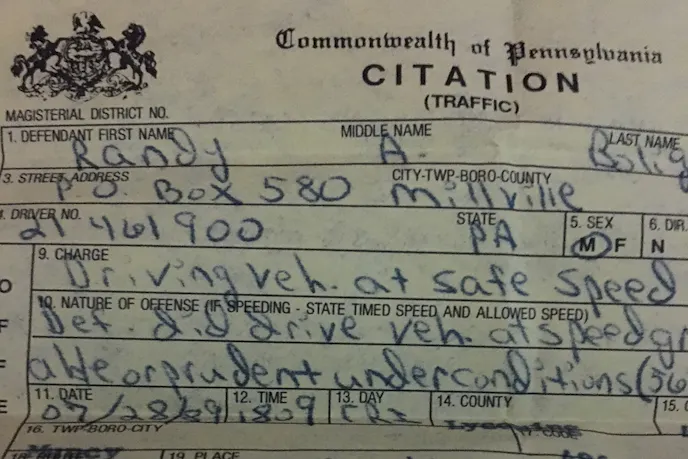 Commonwealth of Pennsylvania
CITATION
(TRAFFIC)
MAGISTERIAL DISTRICT NO.
1. DEFENDANT FIRST NAME MIDDLE NAME LAST NAME
Randy A. Bolig
3. STREET ADDRESS CITY-TWP-BORO-COUNTY
P.O Box 580 Millville
DRIVER NO. STATE 5. SEX 6. DIR.
21461900 PA M F N
9. CHARGE
Driving veh. at safe speed
10. NATURE OF OFFENSE (IF SPEEDING - STATE TIMED SPEED AND ALLOWED SPEED)
Def. did drive veh. at speed gr
able or prudent under conditions (56
11. DATE 12. TIME 13. DAY 14. COUNTY 15.
1809 FRI
16. TWP-BORO-CITY
19. PLACE